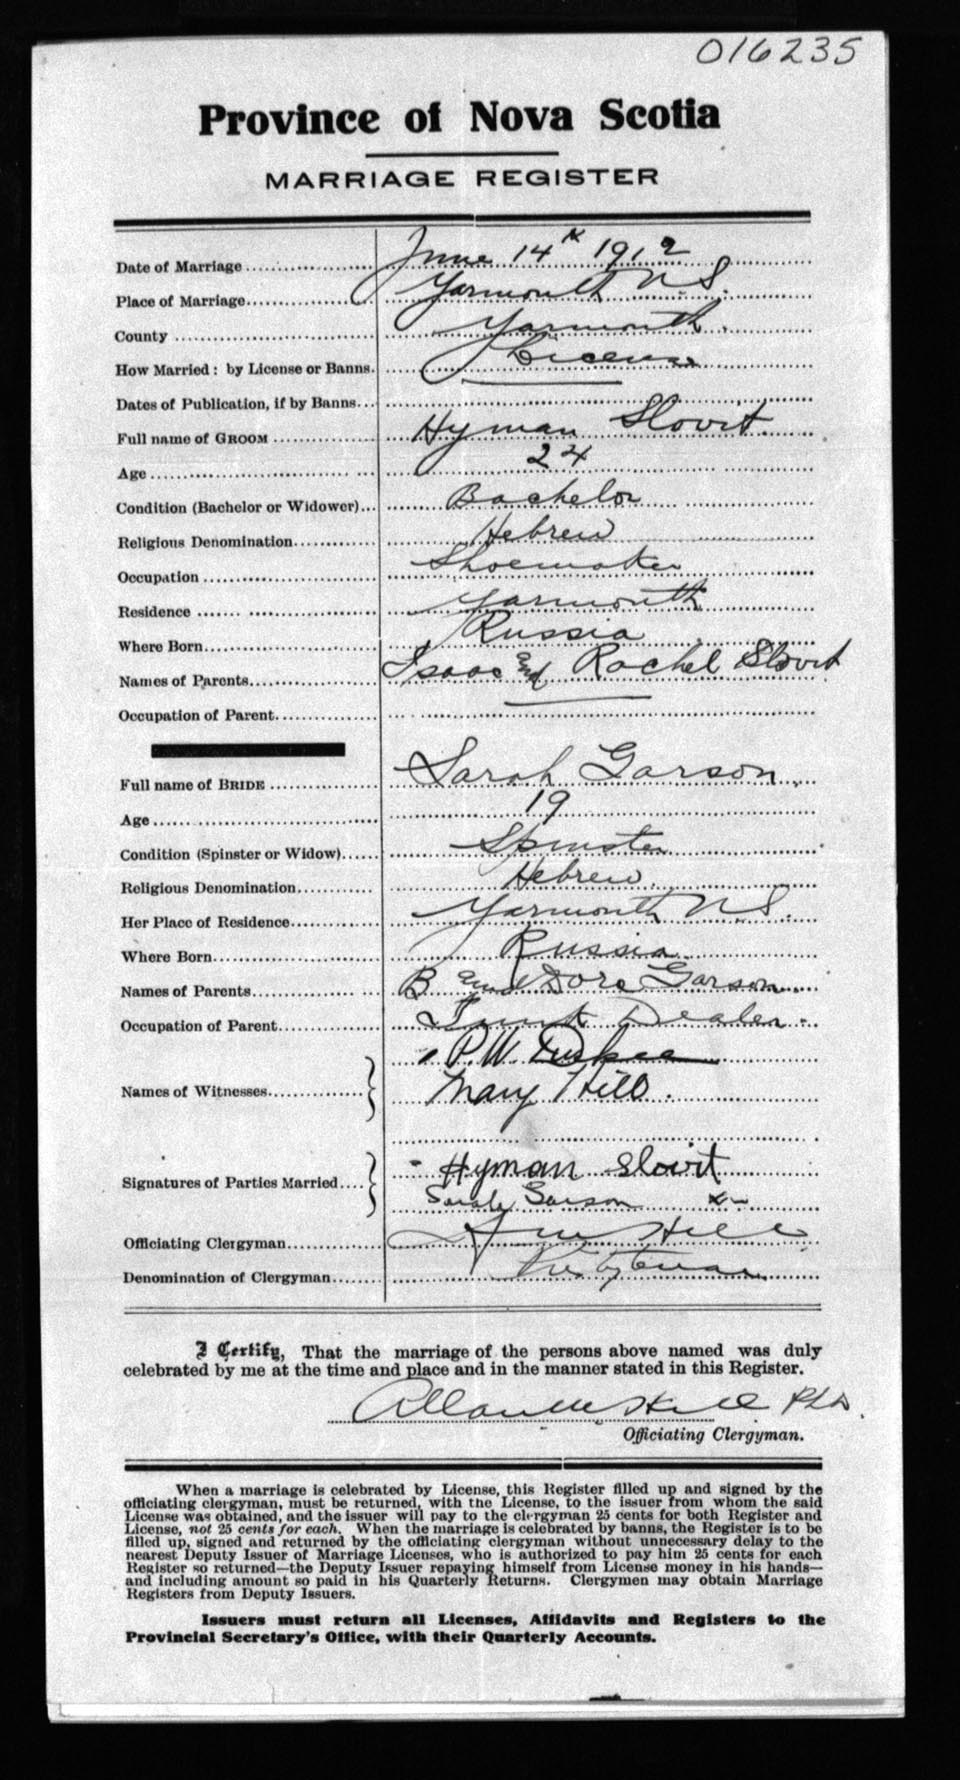 016235
Province of Nova Scotia
MARRIAGE REGISTER
Date of Marriage June 14th 1912
Place of Marriage Yarmouth N.S.
County Yarmouth.
How Married: by License or Banns. License
Dates of Publication, if by Banns
Full name of GROOM Hyman Slovit
Age 24
Condition (Bachelor or Widower) Bachelor
Religious Denomination Hebrew
Occupation Shoemaker
Residence Yarmouth
Where Born Russia
Names of Parents Isaac and Rachel Slovit
Occupation of Parent
Full name of BRIDE Sarah Garson
Age 19
Condition (Spinster or Widow) Spinster
Religious Denomination Hebrew.
Her Place of Residence Yarmouth N.S.
Where Born Russia
Names of Parents B and Dora Garson
Occupation of Parent Dealer
P.W.
Names of Witnesses Mary Hill.
Signatures of Parties Married Hyman Slovit
Sarah Garson x
Officiating Clergyman Hill
Denomination of Clergyman Presbyterian
I Certify, That the marriage of the persons above named was duly
celebrated by me at the time and place and in the manner stated in this Register.
Hill PhD.
Officiating Clergyman.
When a marriage is celebrated by License, this Register filled up and signed by the
officiating clergyman, must be returned, with the License, to the issuer from whom the said
License was obtained, and the issuer will pay to the clergyman 25 cents for both Register and
License, not 25 cents for each. When the marriage is celebrated by banns, the Register is to be
filled up, signed and returned by the officiating clergyman without unnecessary delay to the
nearest Deputy Issuer of Marriage Licenses, who is authorized to pay him 25 cents for each
Register so returned—the Deputy Issuer repaying himself from License money in his hands—
and including amount so paid in his Quarterly Returns. Clergymen may obtain Marriage
Registers from Deputy Issuers.
Issuers must return all Licenses, Affidavits and Registers to the
Provincial Secretary's Office, with their Quarterly Accounts.